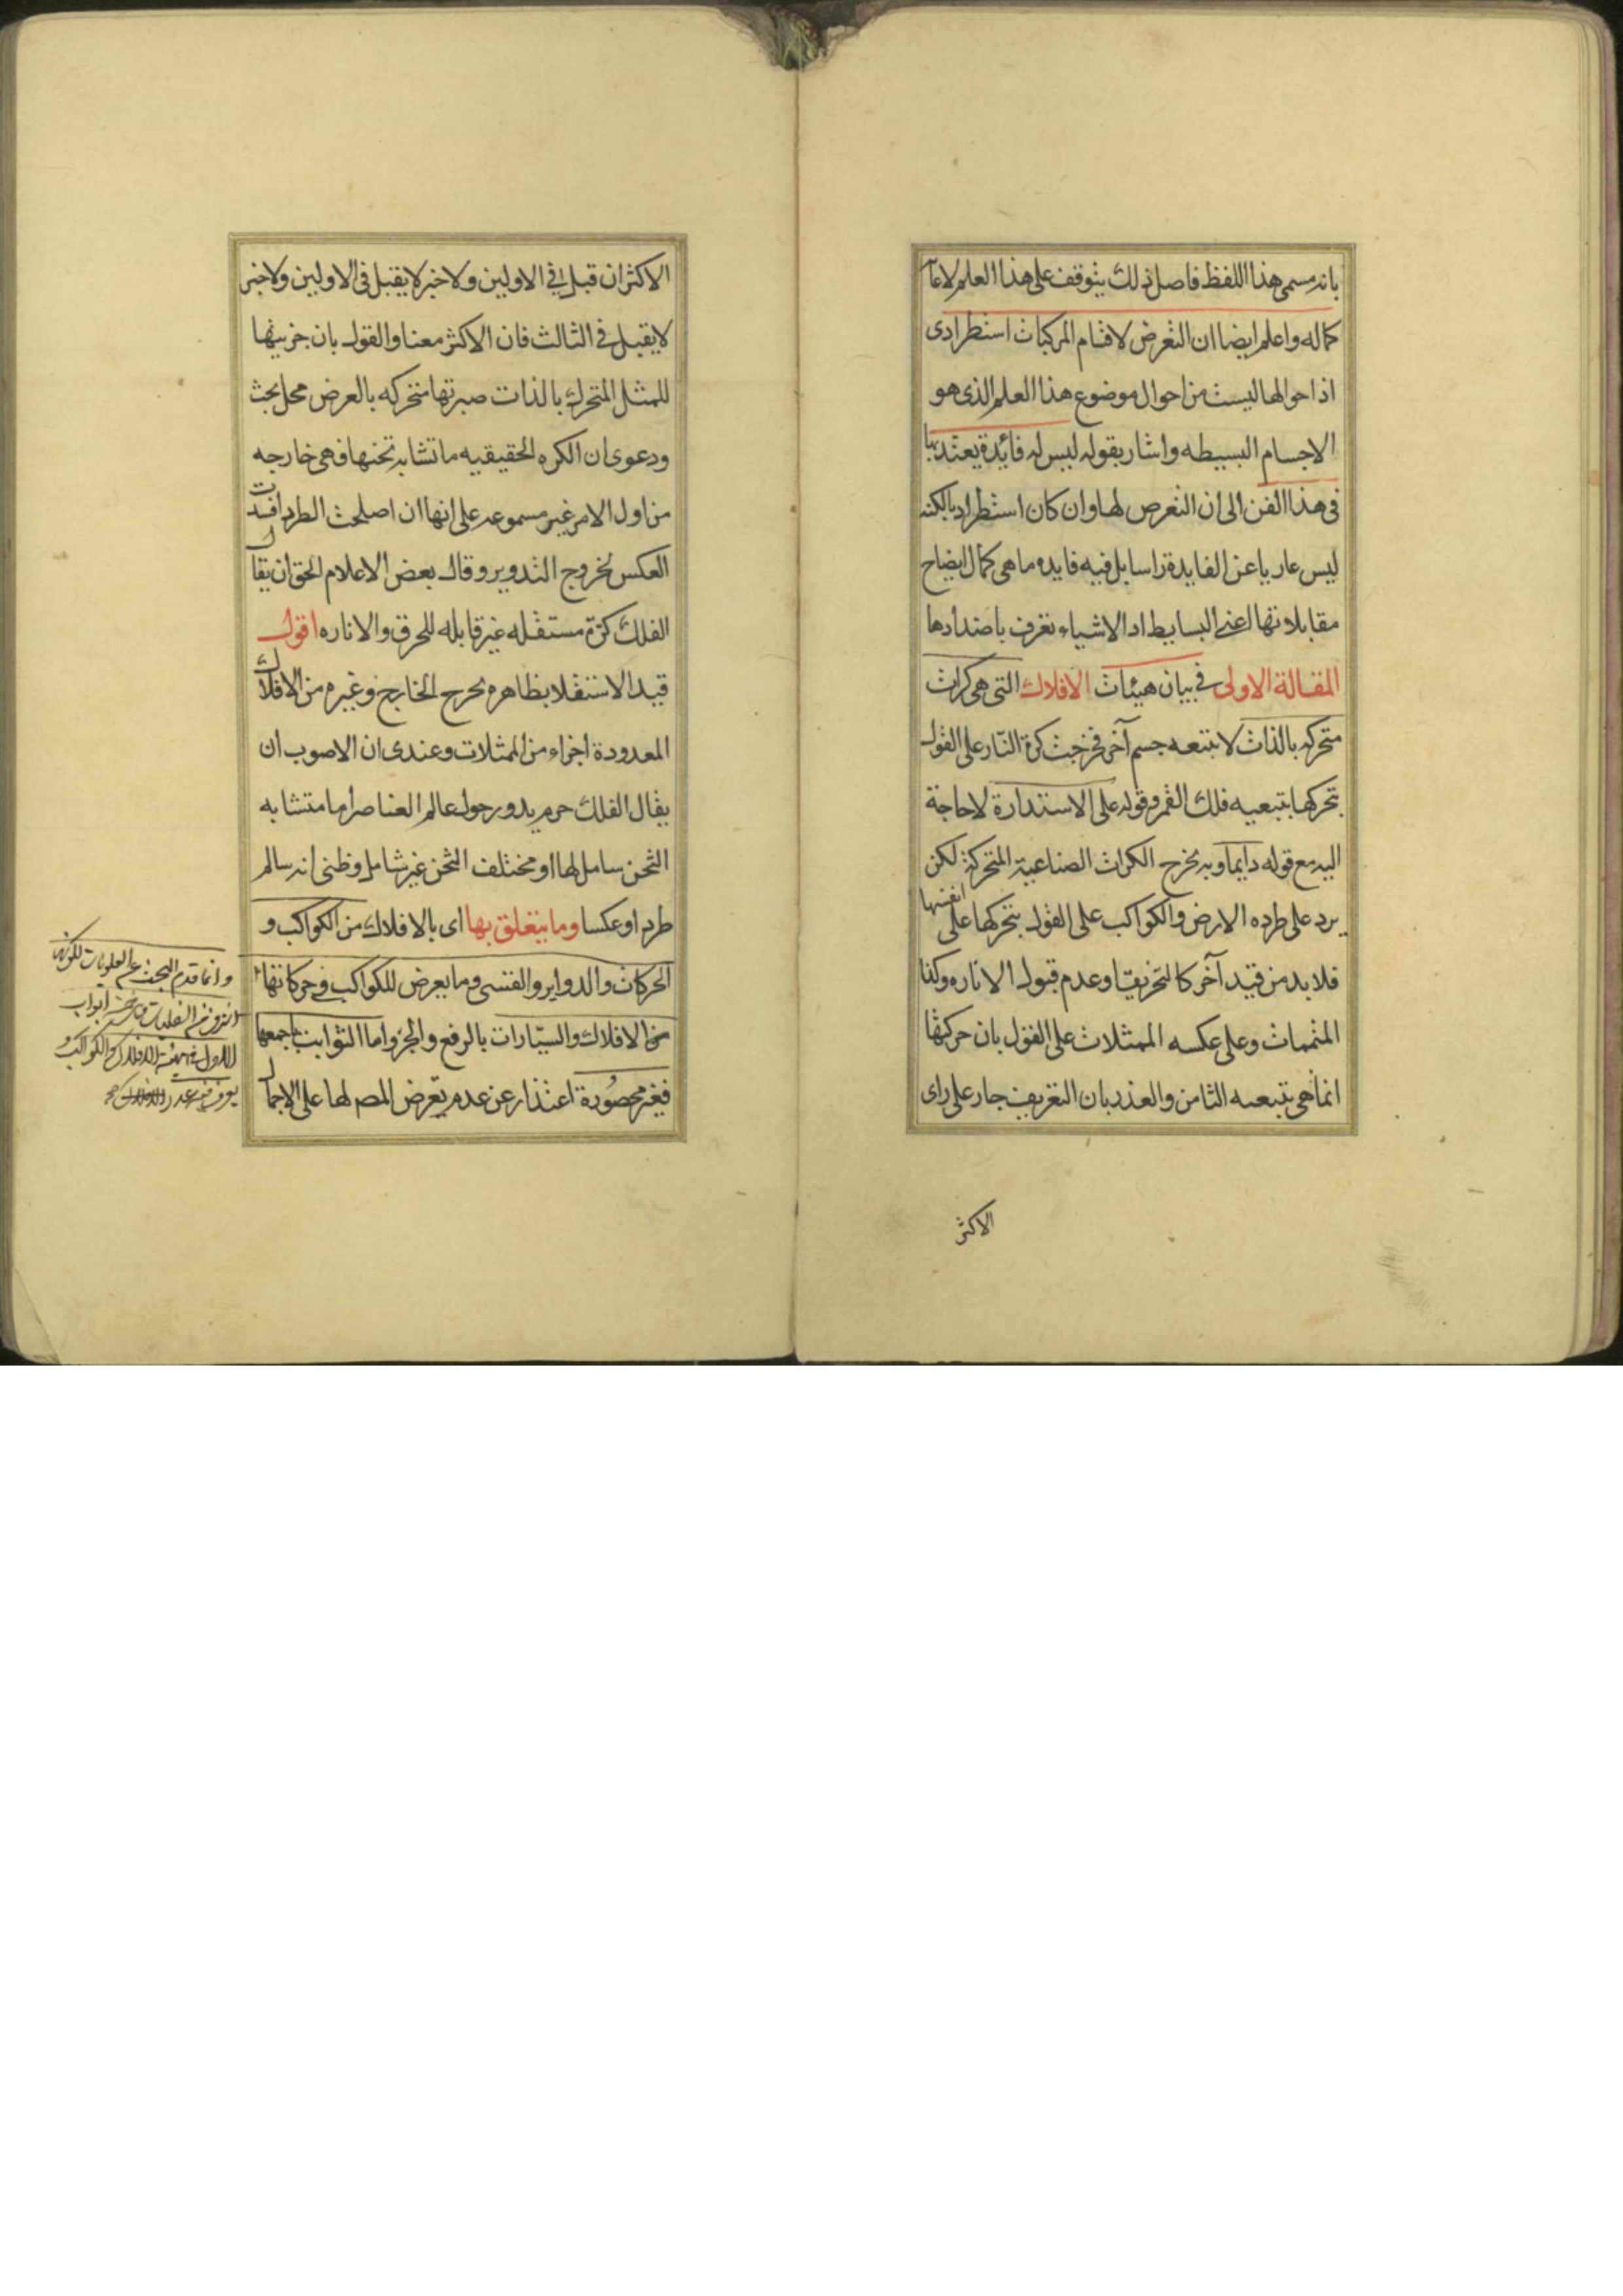 بانه مسمى هذا اللفظ فاصل ذلك يتوقف على هذا العلم لاعا
كماله واعلم ايضا ان التعرض لاقسام المركبات استطرادى
اذ احوالها ليست من احوال موضوع هذا العلم الذى هو
الاجسام البسيطه واشار بقوله ليس له فائدة يعتد بها
فى هذا الفن الى ان التعرض لها وان كان استطراديا لكنه
ليس عاريا عن الفايدة راسا بل فيه فايده ما هى كمال ايضاح
مقابلاتها اعنى البسايط اذ الاشياء تعرف باضدادها
المقالة الاولى فى بيان هيئات الافلاك التى هى كرات
متحركه بالذات لا بتبعه جسم آخر فخرجت كرة النار على القول
بتحركها بتبعيه فلك القمر وقوله على الاستدارة لا حاجة
اليه مع قوله دايما وبه يخرج الكرات الصناعية المتحركة لكن
يرد على طرده الارض والكواكب على القول بتحركها على انفسها
فلا بد من قيد آخر كالتخريقا وعدم قبول الاناره وكذا
المتممات وعلى عكسه الممثلات على القول بان حركتها
انما هى بتبعيه الثامن والعذر بان التعريف جار على راى
الاكثر
الاكثر ان قبل فى الاولين ولاخير لا يقبل فى الاولين ولاخير
لا يقبل فى الثالث فان الاكثر معنا والقول بان جزئيتها
للمثل المتحرك بالذات صيرتها متحركه بالعرض محل بحث
ودعوى ان الكره الحقيقيه ما تشابه ثخنها فهى خارجه
من اول الامر غير مسموعه على انها ان اصلحت الطرد افسدت
العكس لخروج التدوير وقال بعض الاعلام الحق ان يقال
الفلك كرة مستقله غير قابله للخرق والاناره اقول
قيد الاستقلا بظاهره يخرج الخارج وغيره من الافلاك
المعدودة اجزاء من الممثلات وعندى ان الاصوب ان
يقال الفلك جرم يدور حول عالم العناصر اما متشابه
الثخن شامل لها او مختلف الثخن غير شامل وظنى انه سالم
طردا وعكسا وما يتعلق بها اى بالافلاك من الكواكب و
الحركات والدواير والقسى وما يعرض للكواكب فى حركاتها
من الافلاك والسيّارات بالرفع والجر واما الثوابت باجمعها
فغير محصورة اعتذار عن عدم تعرض المصـ لها على الاجمال
وانما قدم البحث عن العلويات لكونها
اشرف من السفليات خمسة ابواب
الاول فى هيئة الافلاك والكواكب